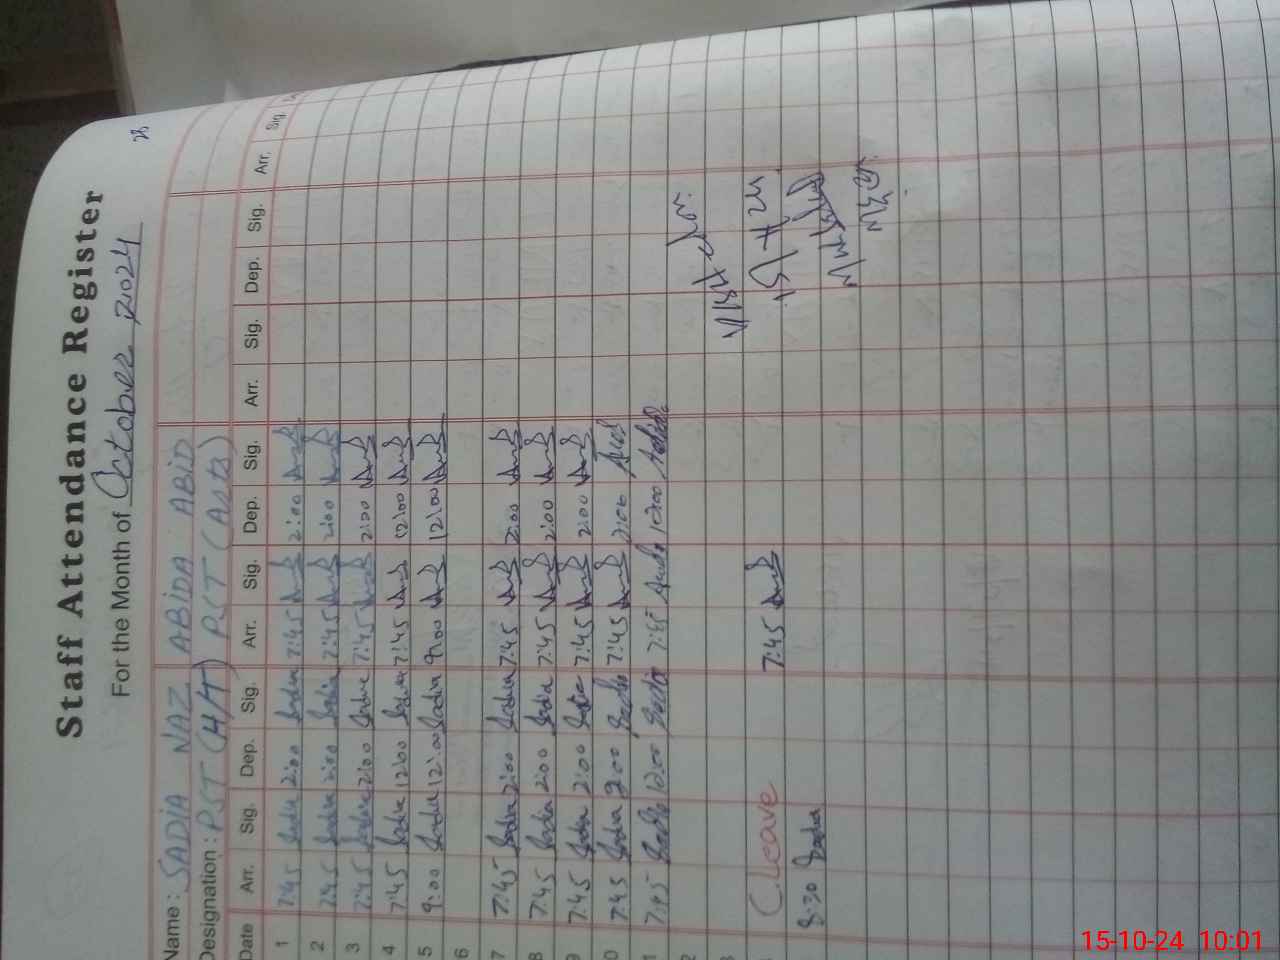 Staff Attendance Register
For the Month of October 2024
28
Name : SADIA NAZ ABiDA ABID
Designation : PST (H/T) PST (Arts)
Date Arr. Sig. Dep. Sig. Arr. Sig. Dep. Sig. Arr. Sig. Dep. Sig. Arr. Sig.
1 7:45 Sadia 2:00 Sadia 7:45 2:00
2 7:45 Sadia 2:00 Sadia 7:45 2:00
3 7:45 Sadia 2:00 Sadia 7:45 2:00
4 7:45 Sadia 12:00 Sadia 7:45 12:00
5 9:00 Sadia 12:00 Sadia 9:00 12:00
6
7 7:45 Sadia 2:00 Sadia 7:45 2:00
8 7:45 Sadia 2:00 Sadia 7:45 2:00
9 7:45 Sadia 2:00 Sadia 7:45 2:00
0 7:45 Sadia 2:00 Sadia 7:45 2:00
1 7:45 Sadia 12:00 Sadia 7:45 12:00
2
3
C.Leave 7:45
8:30 Sadia
15-10-24 10:01